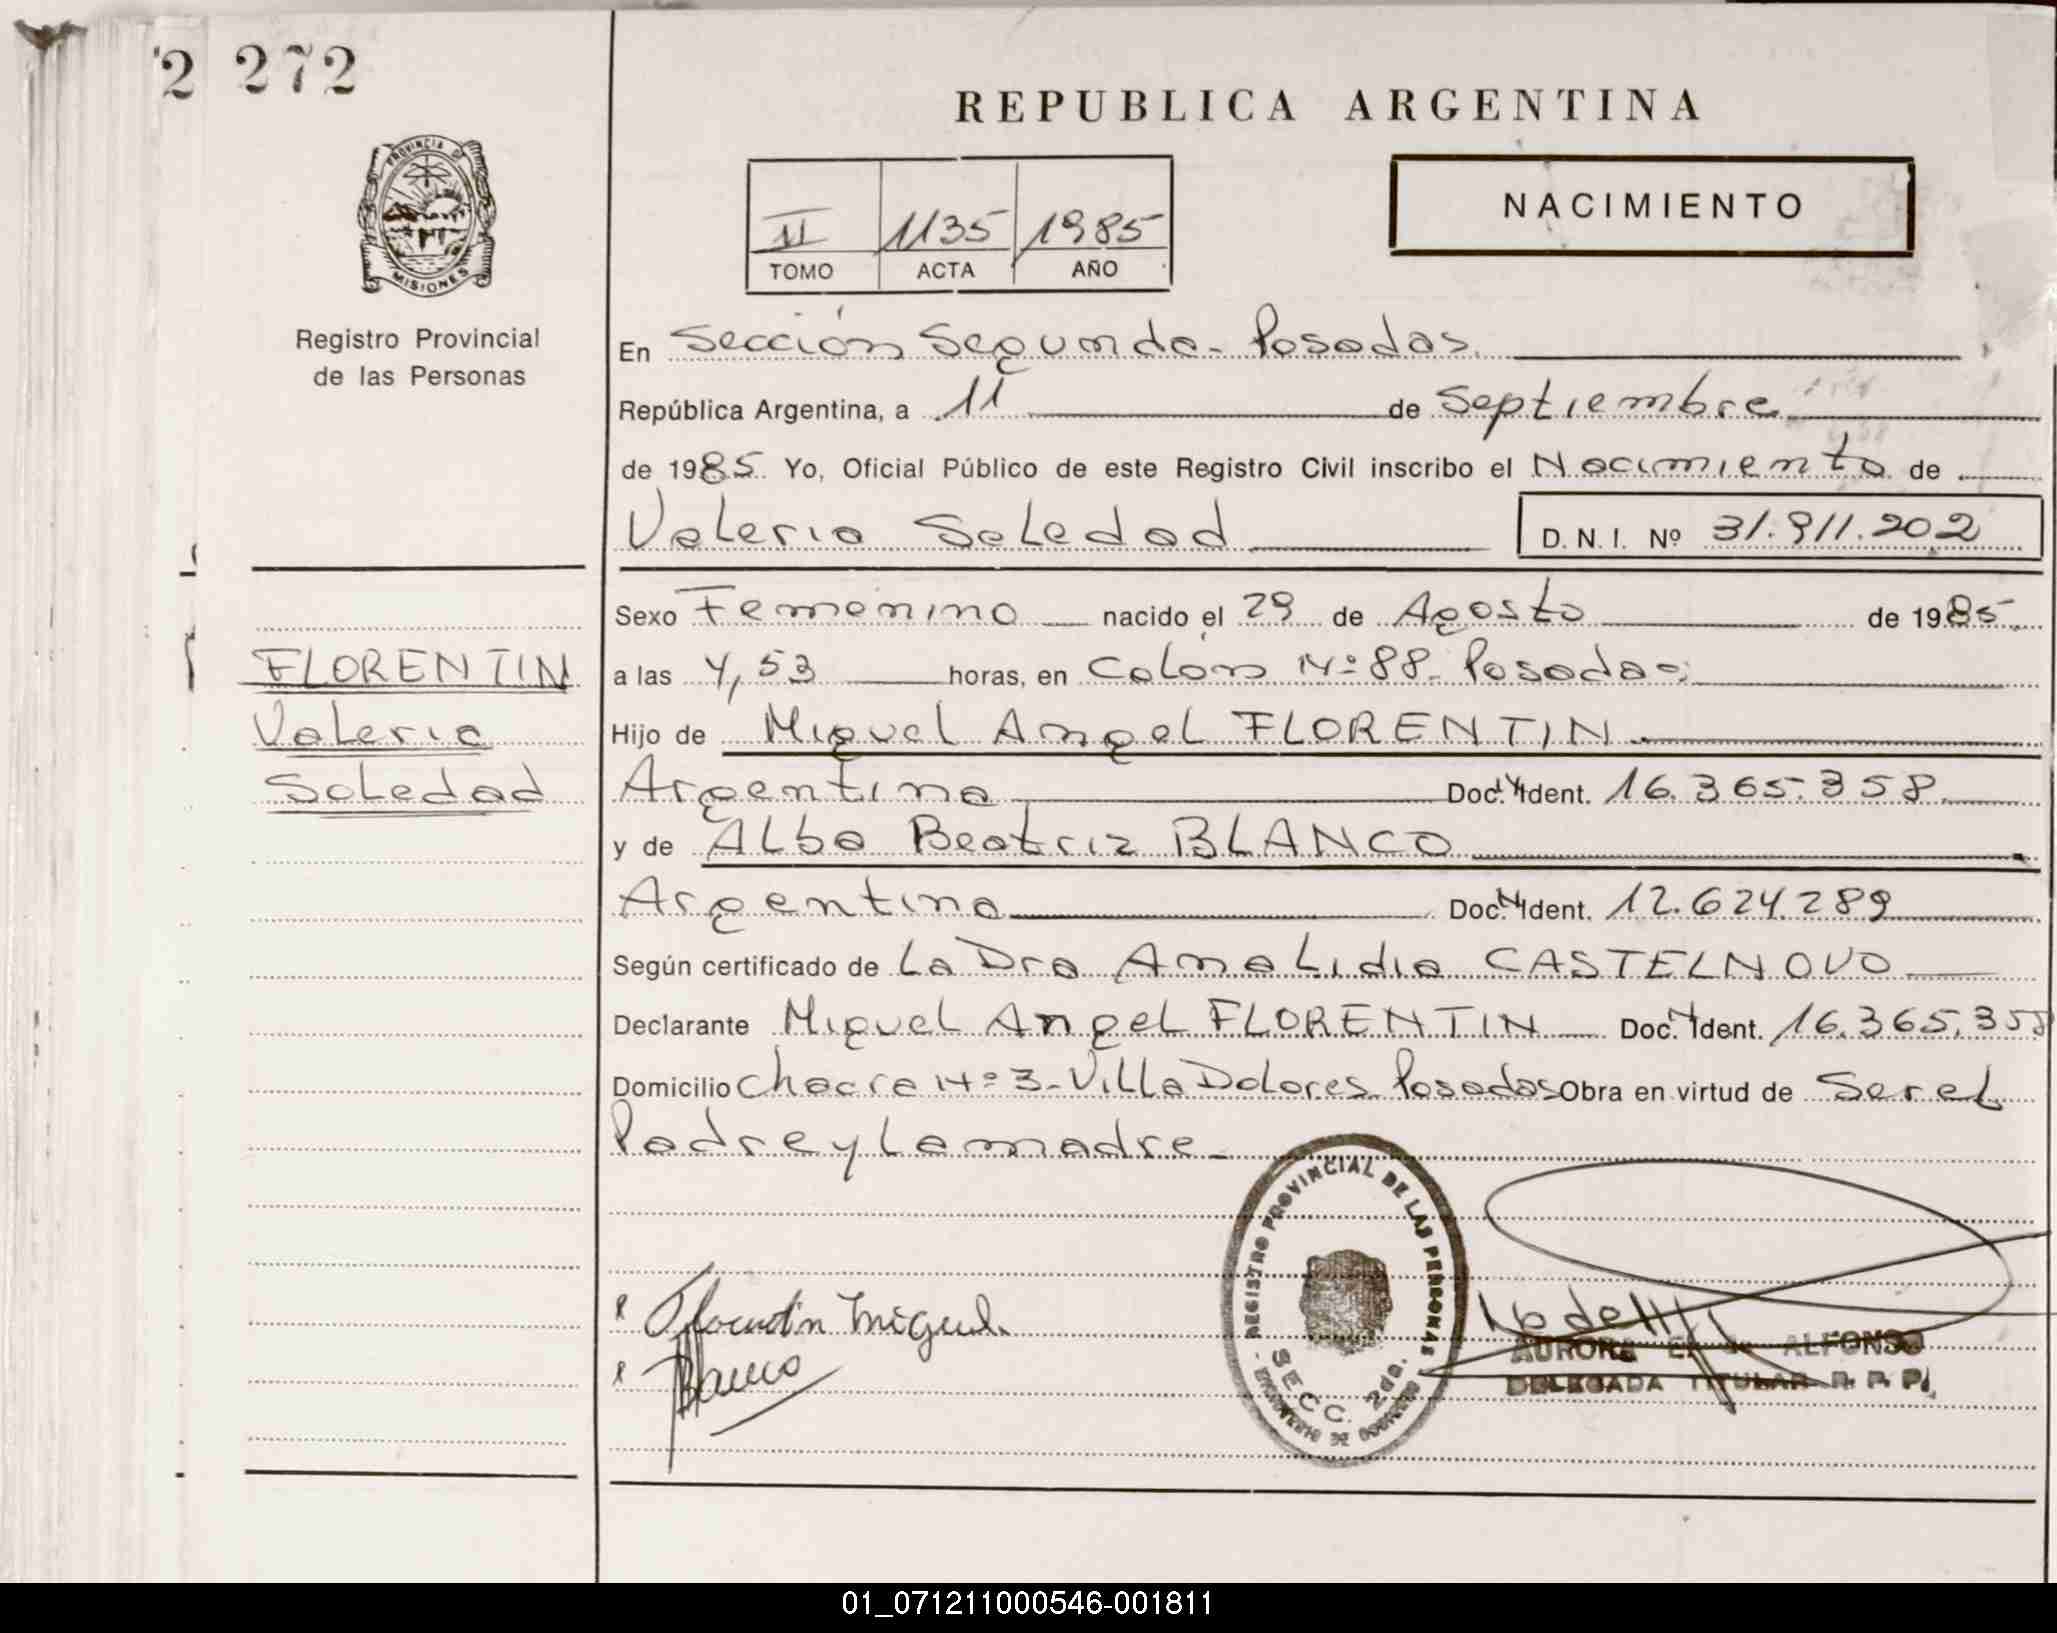 2 272
REPUBLICA ARGENTINA
PROVINCIA DE
MISIONES
Registro Provincial
de las Personas
II 1135 1985
TOMO ACTA AÑO
NACIMIENTO
En Sección Segunda - Posadas.
República Argentina, a 11 de Septiembre
de 1985. Yo, Oficial Público de este Registro Civil inscribo el Nacimiento de
Valeria Soledad D. N. I. Nº 31.911.202
Sexo Femenino nacido el 29 de Agosto de 1985.
FLORENTIN
Valeria
Soledad
a las 4,53 horas, en Colón Nº 88 - Posadas;
Hijo de Miguel Angel FLORENTIN
Argentina Doc. N Ident. 16.365.358
y de Alba Beatriz BLANCO
Argentina Doc. N Ident. 12.624.289
Según certificado de La Dra Ana Lidia CASTELNOVO
Declarante Miguel Angel FLORENTIN Doc. N Ident. 16.365.358
Domicilio Chacra Nº 3 - Villa Dolores. Posadas Obra en virtud de Ser el
Padre y La madre -
Florentin Miguel.
Blanco
REGISTRO PROVINCIAL DE LAS PERSONAS
SECC. 2da.
AURORA ALFONSO
DELEGADA TITULAR R. P. P.
01_071211000546-001811